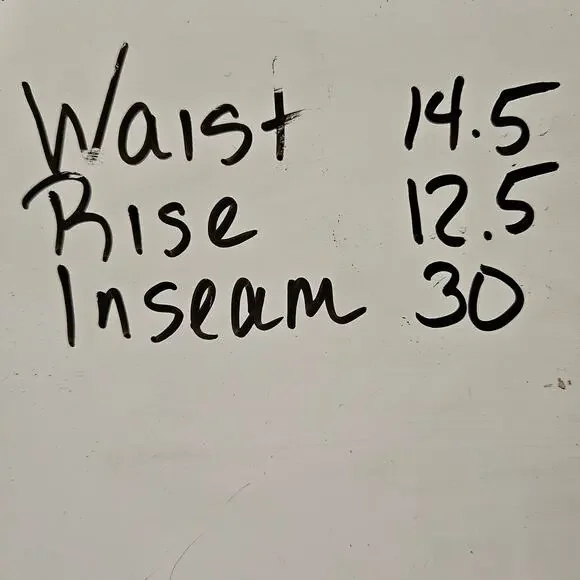 Waist 14.5
Rise 12.5
Inseam 30